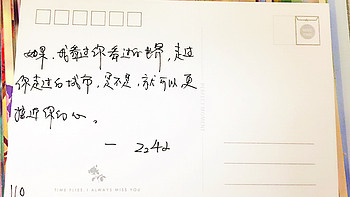 如果，我看过你看过的世界，走过
你走过的城市，是不是，就可以更
接近你的心。
一 224d
TIME FLIES I ALWAYS MISS YOU
110